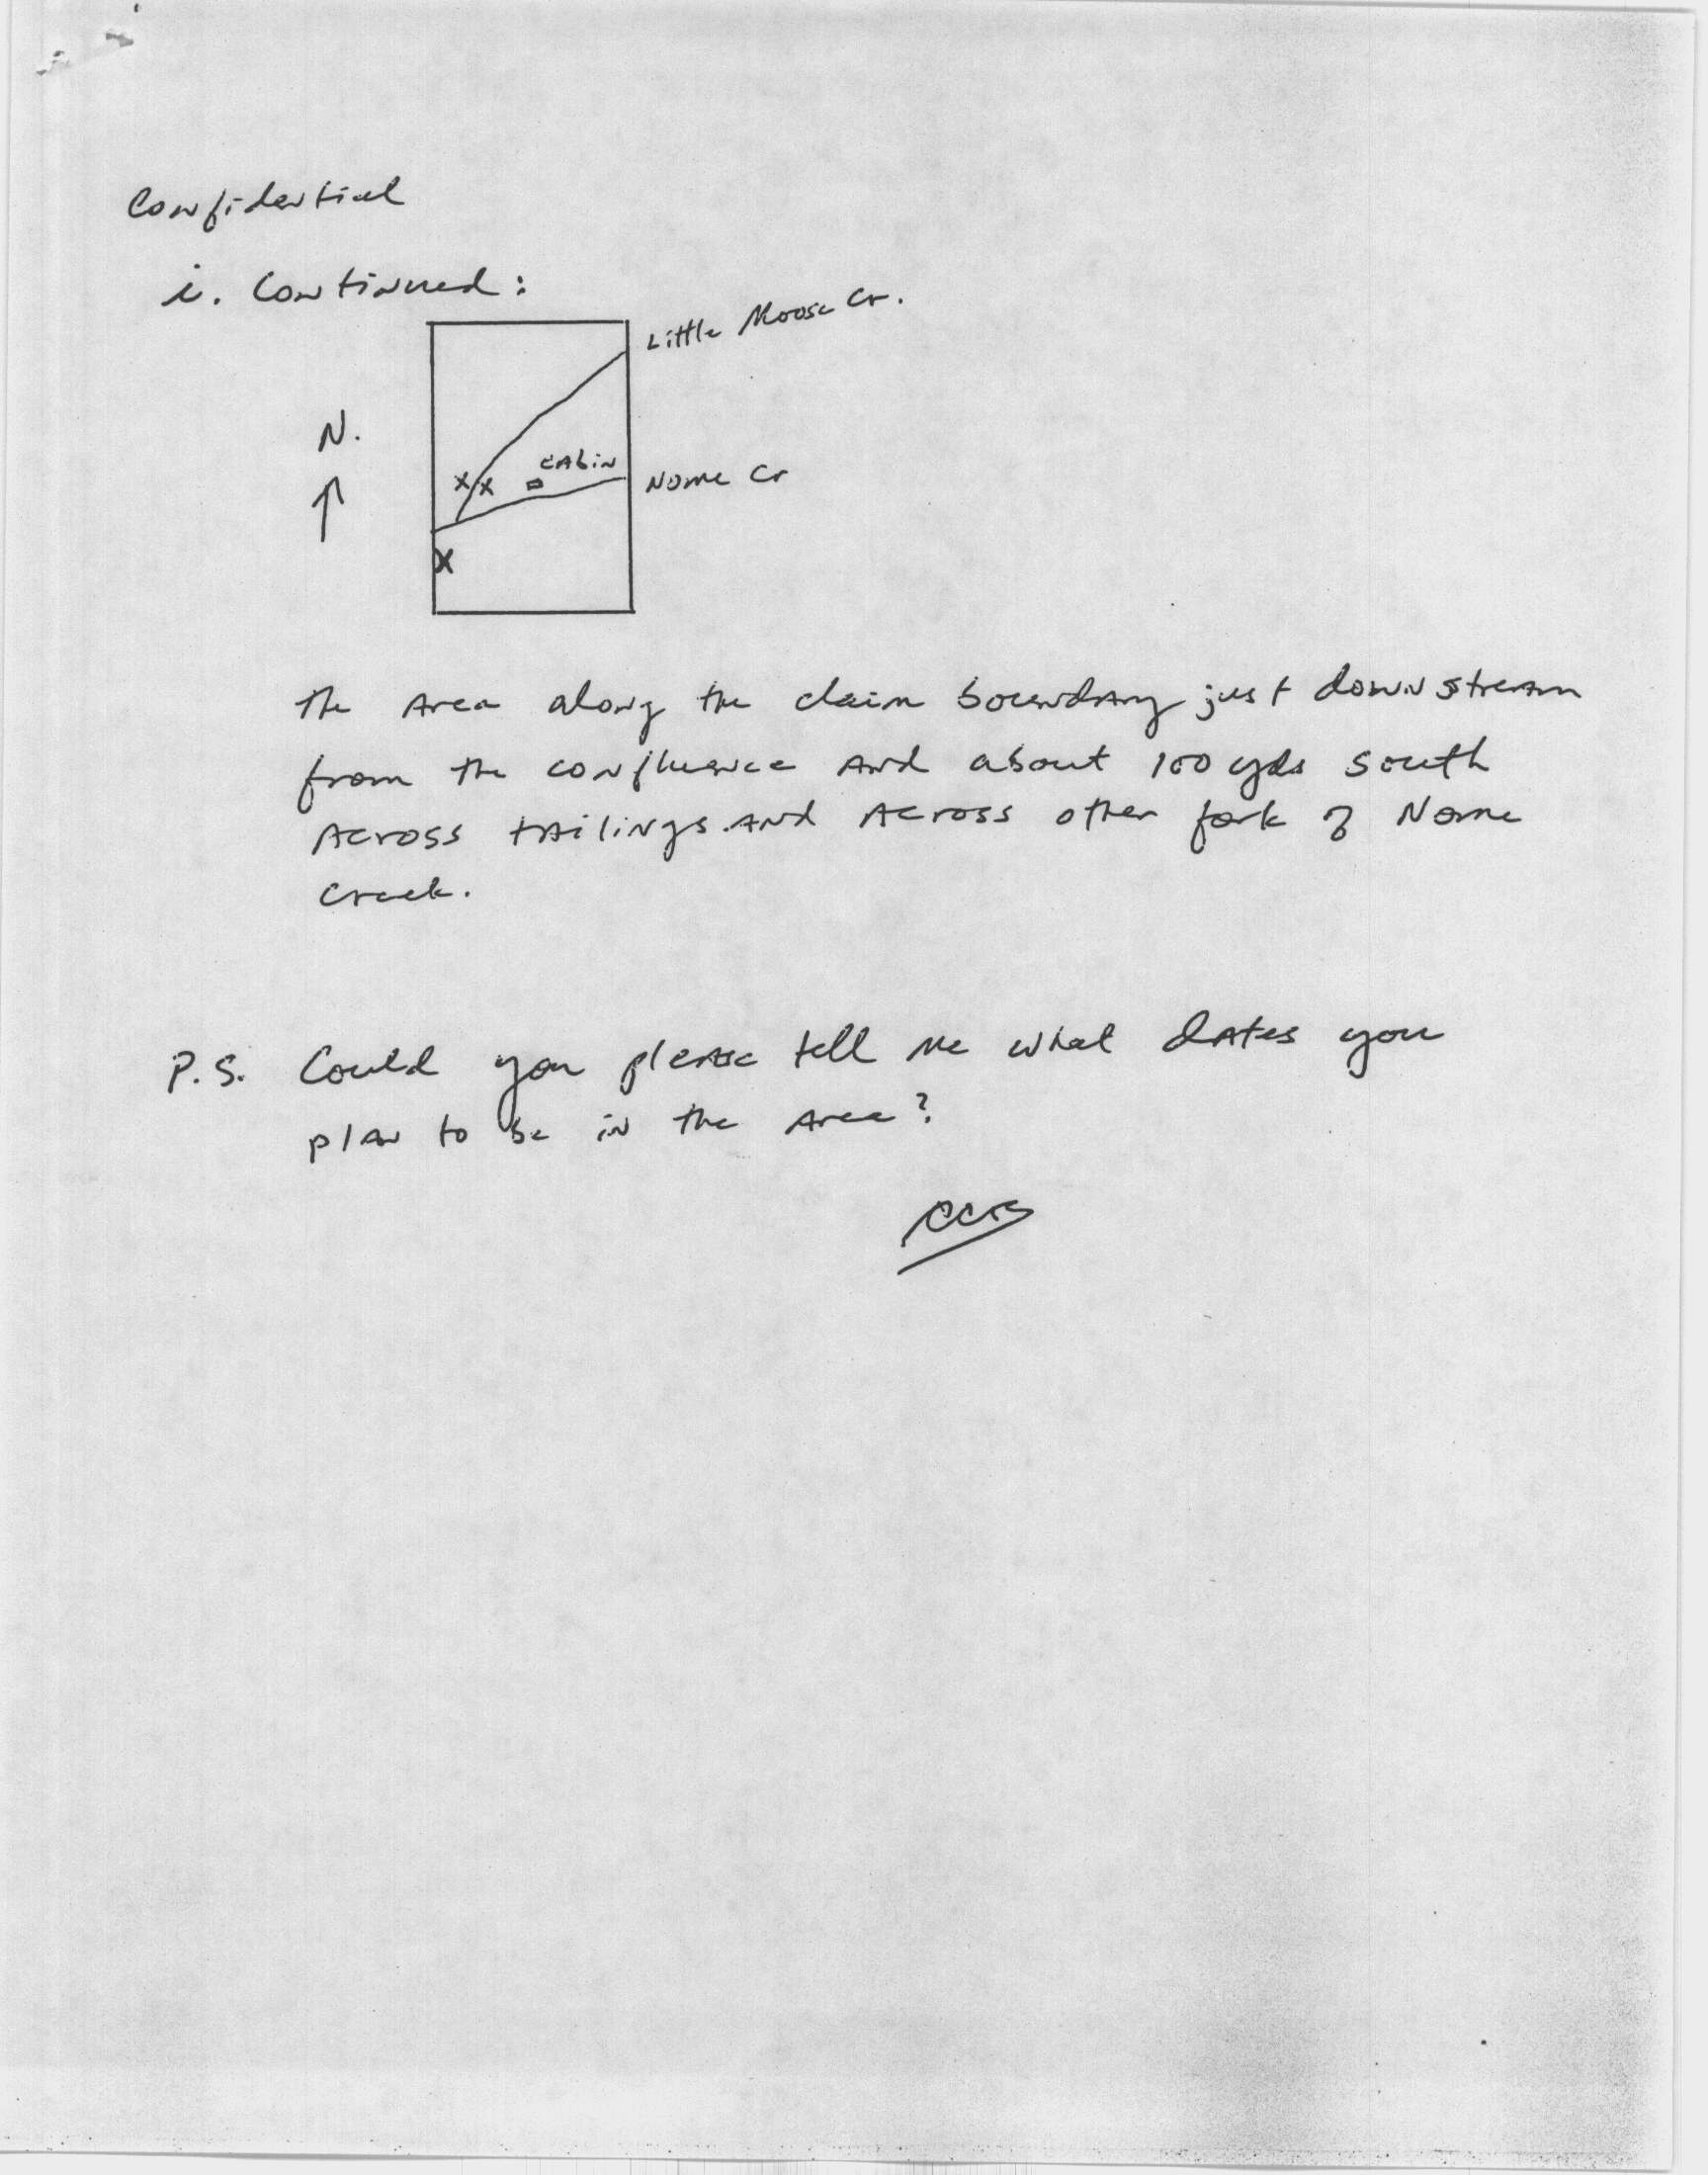 Confidential
i. Continued:
Little Moose Cr.
N.
cabin
x x
Nome Cr
X
The area along the claim boundary just downstream
from the confluence and about 100 yds south
across tailings and across other fork of Nome
Creek.
P.S. Could you please tell me what dates you
plan to be in the area?